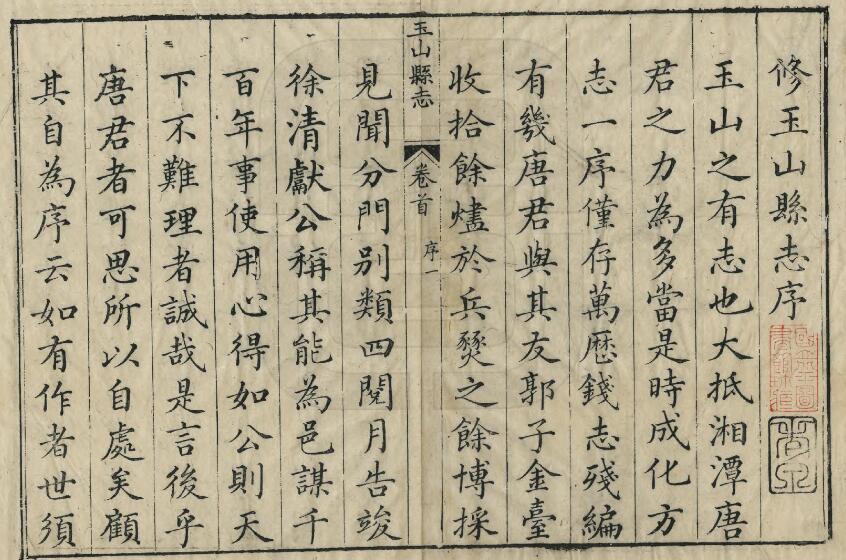 修玉山縣志序
玉山之有志也大抵湘潭唐
君之力為多當是時成化方
志一序僅存萬歷錢志殘編
有幾唐君與其友郭子金臺
收拾餘燼於兵燹之餘博採
玉山縣志 卷首 序一
見聞分門別類四閱月告竣
徐清獻公稱其能為邑謀千
百年事使用心得如公則天
下不難理者誠哉是言後乎
唐君者可思所以自處矣顧
其自為序云如有作者世須